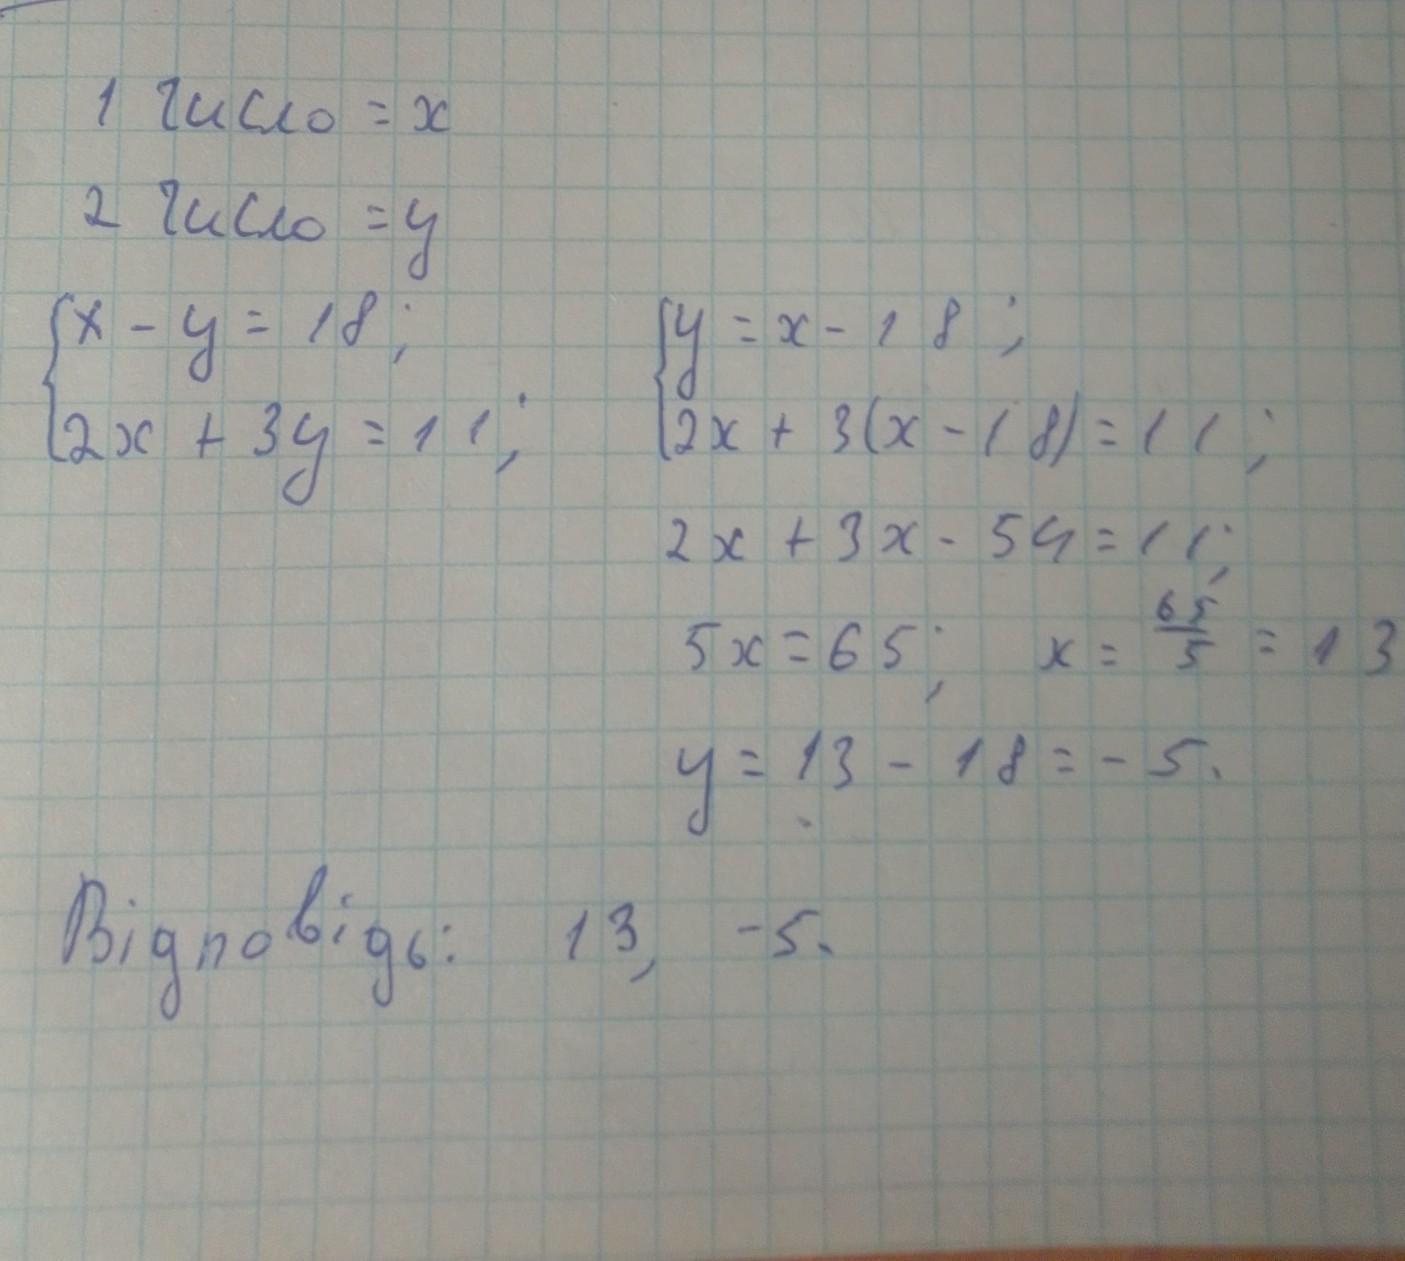 1 число = x
2 число = y
{x - y = 18;
2x + 3y = 11;
{y = x - 18;
2x + 3(x - 18) = 11;
2x + 3x - 54 = 11;
5x = 65; x = 65/5 = 13
y = 13 - 18 = - 5.
Відповідь: 13, -5.